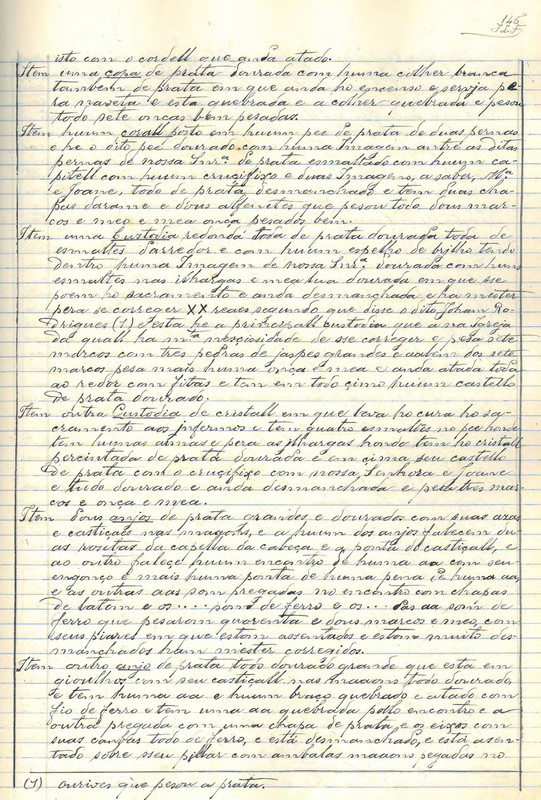 146
isto com o cordell que anda atado.
Item uma copa de prata dourada com huma colher branca
tambem de prata em que anda ho encenso e serve pe
ra naveta e está quebrada e a colher quebrada e pesou
todo sete onças bem pesadas.
Item huum corall posto em huum pee de prata de duas pernas
e he o dito pee dourado com huma Imagem antre as ditas
pernas de nossa Snrª de prata esmaltado com huum ca-
pitell com huum crucifixo e duas Imagens, a saber, Mª
e Joane, todo de prata desmanchado e tem duas cha-
pas darame e dous alfenetes que pesou todo dous mar-
cos e meo e mea onça pesados bem.
Item uma Custodia redonda toda de prata dourada toda de
esmaltes darredor e com huum espelho de brilho tendo
dentro huma Imagem de nossa Snrª dourada com huns
esmaltes nas ilhargas e mea lua dourada em que sse
poem ho sacramento e anda desmanchada e ha mester
pera se correger XX reaes segundo que disse o dito Joham Ro-
drigues (1) e esta he a principall custodia que á na igreja
da quall ha mta nescisidade de sse correger e pesa sete
marcos com tres pedras de jaspes grandes e aallem dos sete
marcos pesa mais huma onça e mea e anda atada toda
ao redor com fitas e tem em todo çimo huum castello
de prata dourado.
Item outra Custodia de cristall em que leva ho cura ho sa-
cramento aos infermos e tem quatro esmaltes no pee honde
tem humas armas e pera as ilhargas honde tem ho cristall
percintada de prata dourada e em cima seu castello
de prata com o crucifixo com nossa Senhora e Joane
e tudo dourado e anda desmanchada e pesa tres mar-
cos e onça e mea.
Item Dous anjos de prata grandes e dourados com suas azas
e castiçaes nas maaons, e a huum dos anjos falecem du-
as rosetas da capella da cabeça e a ponta do castiçall, e
ao outro faleçe huum encontro de huma aa com seu
engonço e mais huma ponta de huma pena de huma aa,
e as outras aas som pregadas no encontro com chapas
de latom e os .... som de ferro e os ... das aa som de
ferro que pesaram quorenta e dous marcos e meo, com
seus piares em que estom assentados e estom muito des-
manchados ham mester corregidos.
Item outro anjo de prata todo dourado grande que esta em
gioulhos com seu castiçall nas maaons todo dourado,
e tem huma aa e huum braço quebrado e atado com
fio de ferro e tem uma aa quebrada pollo encontro e a
outra pregada com uma chapa de prata e os eixos com
suas todo de ferro, e está desmanchado, e está asen-
tado sobre sseu pillar com ambalas maaons pegadas no
(1) ourives que pesou a prata.